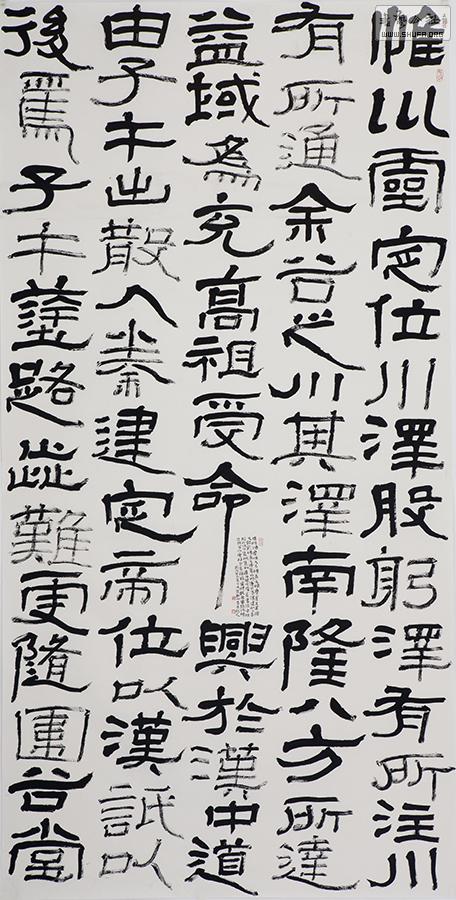 惟巛靈定位川澤股躬澤有所注川
有所通余谷之川其澤南隆八方所達
益域為充高祖受命興於漢中道
由子午出散入秦建定帝位以漢詆以
後焉子午塗路歰難更隨圍谷堂
WWW.SHUFA.ORG